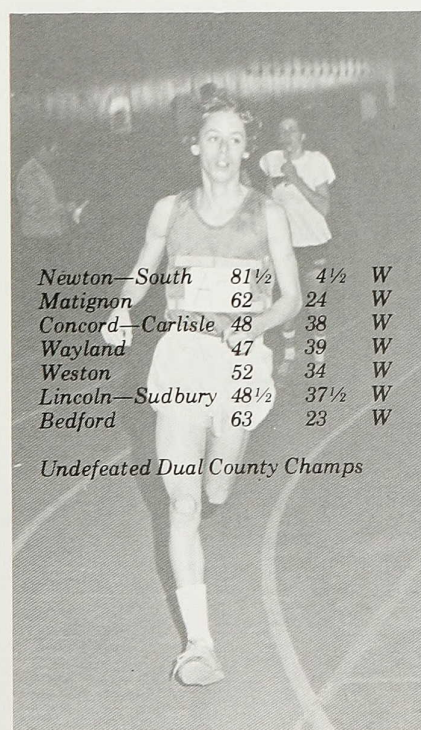 Newton—South 81½ 4½ W
Matignon 62 24 W
Concord—Carlisle 48 38 W
Wayland 47 39 W
Weston 52 34 W
Lincoln—Sudbury 48½ 37½ W
Bedford 63 23 W
Undefeated Dual County Champs